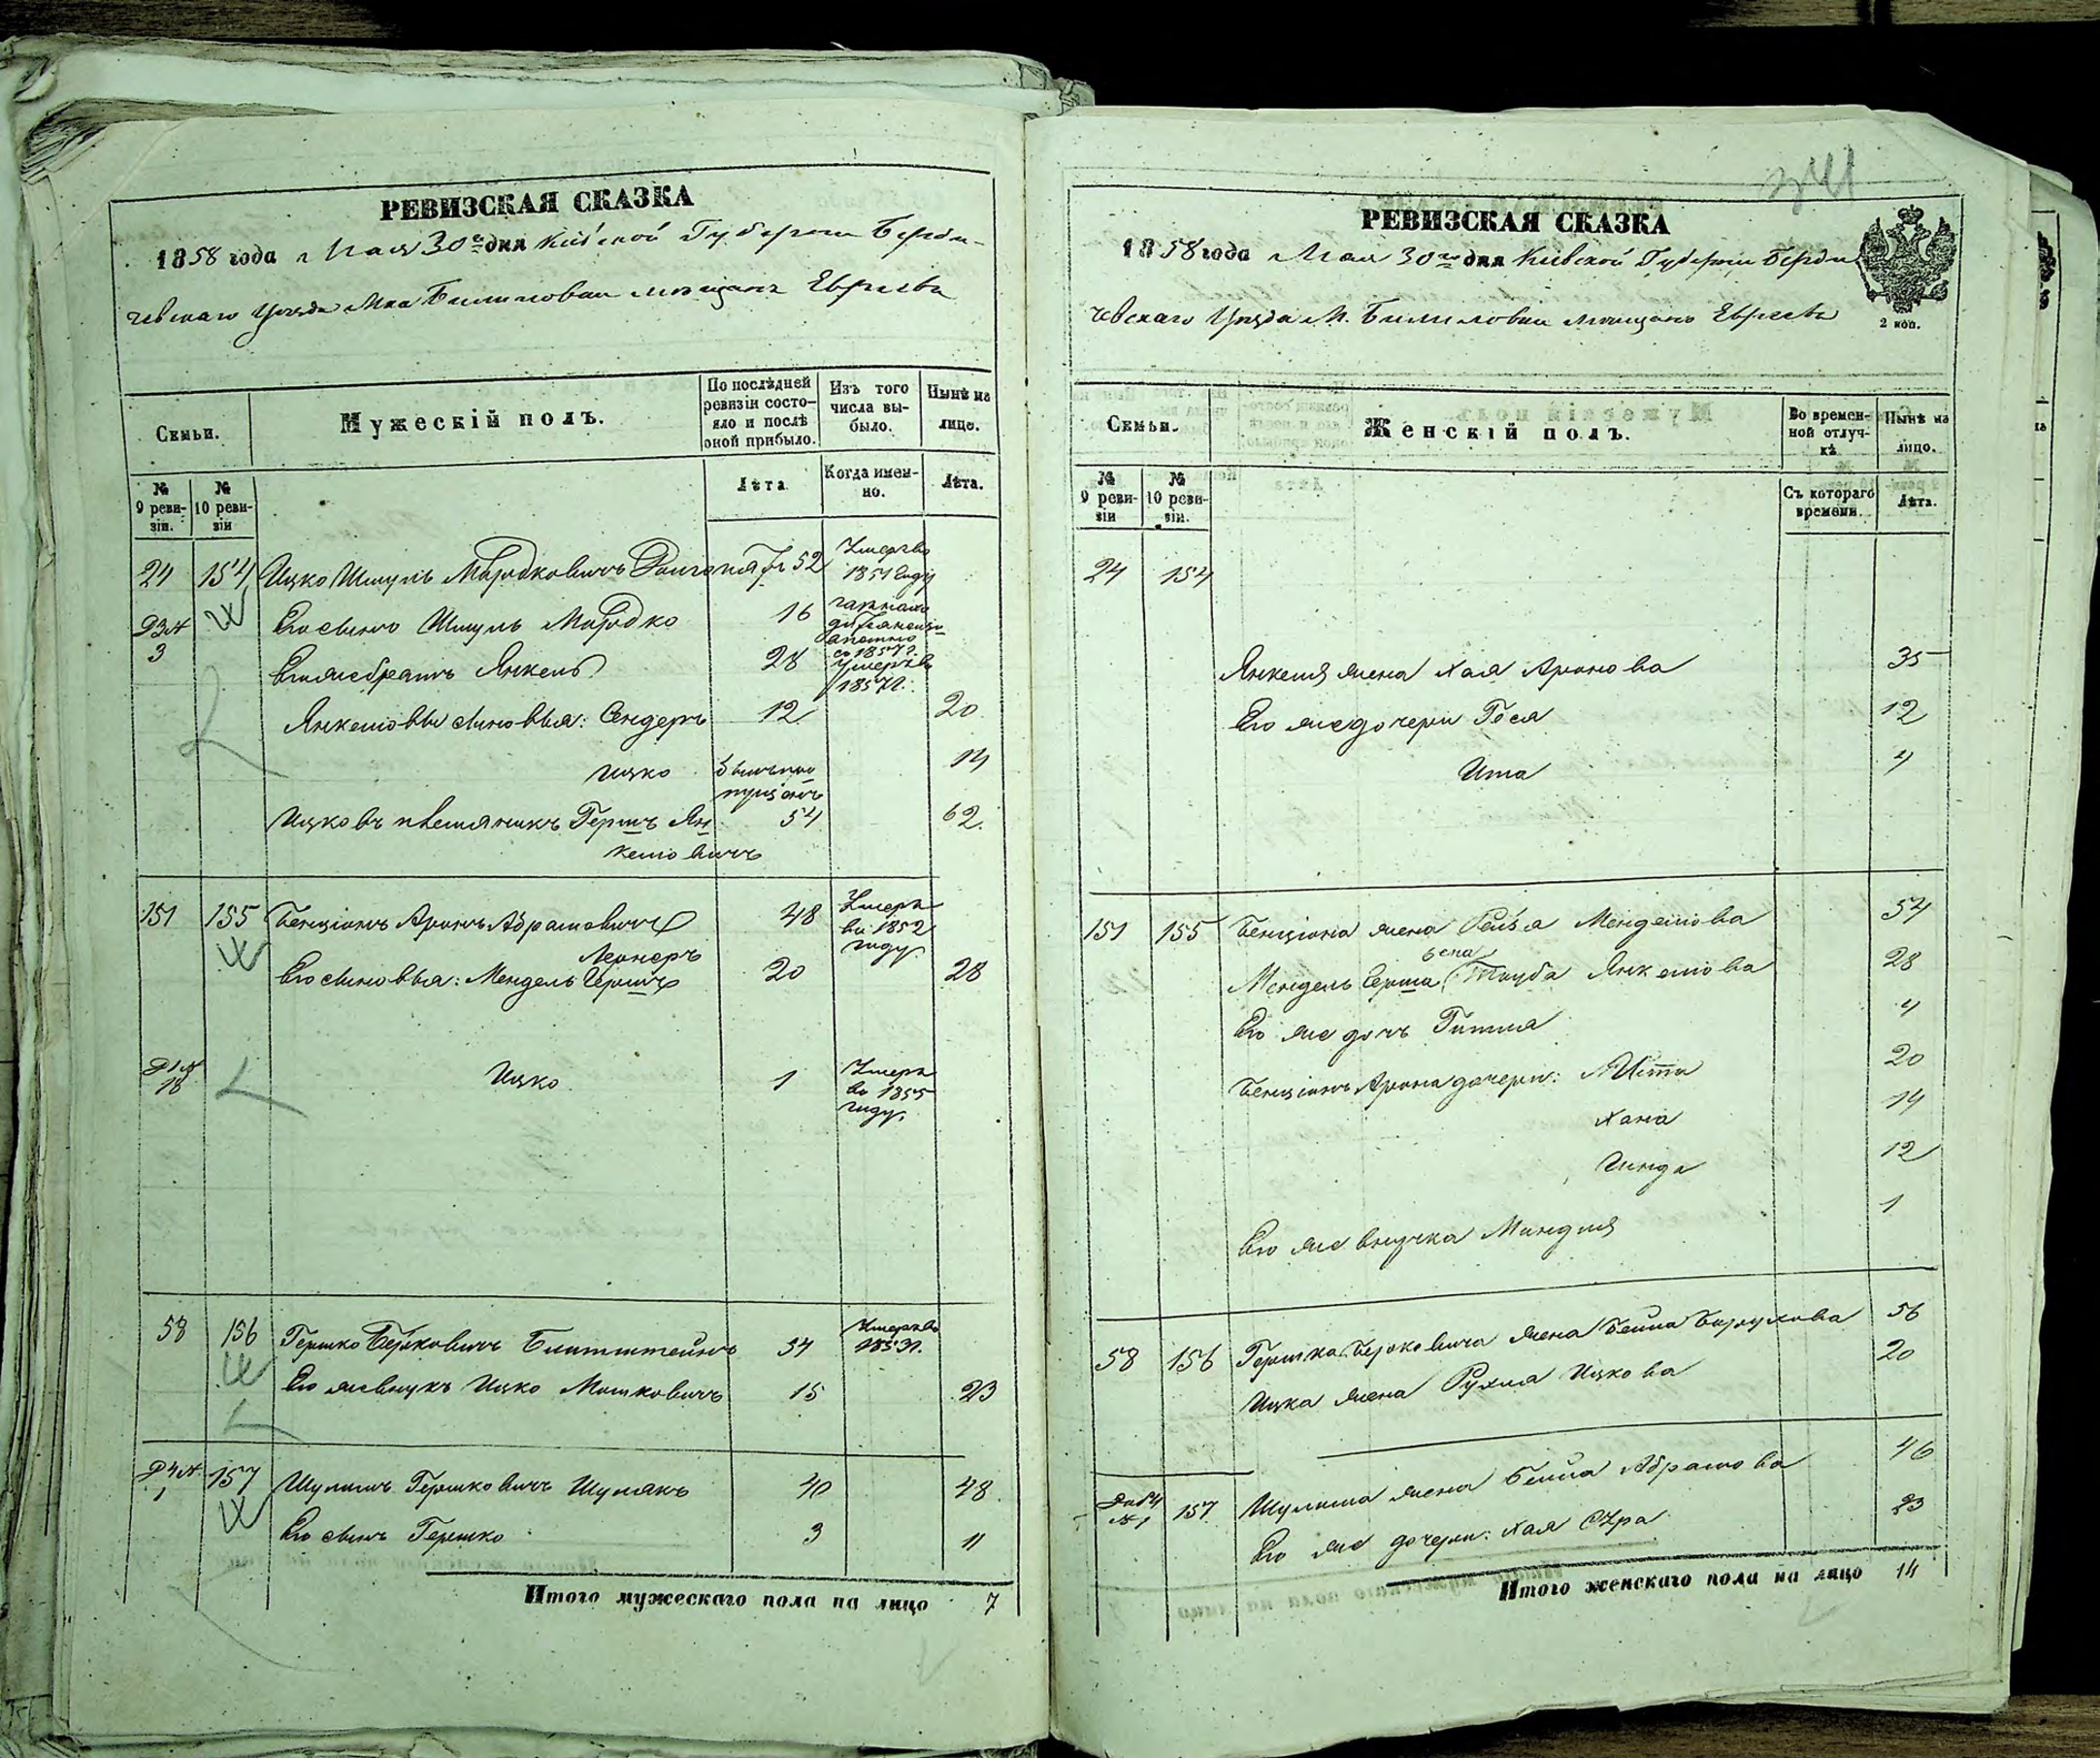 РЕВИЗСКАЯ СКАЗКА
1858 года Мая 30го дня Кіевской Губерніи Берди-
чевскаго Уѣзда Мка Билиловки мѣщанъ Евреевъ
Семьи.
Мужескій полъ.
По послѣдней ревизіи состояло и послѣ оной прибыло.
Изъ того числа выбыло.
Нынѣ на лицо.
№ 9 ревизіи.
№ 10 ревизіи
Лѣта
Когда именно.
Лѣта.
24 154 Ицко Шмуль Мордковичъ 52 Умеръ въ 1851 году
№ 3 Его сынъ Шмуль Мордко 16 1857 г.
Его же братъ Янкель 28 Умеръ въ 1857 г.
Янкеловы сыновья: Сендеръ 12 20
Ицко былъ пропущенъ 14
Ицковъ племянникъ Гершъ Ян- 54 62
келовичъ
151 155 Бенціонъ Аронъ Абрамовичъ 48 Умеръ въ 1852 году
Лернеръ
Его сыновья: Мендель Гершъ 20 28
18 Ицко 1 Умеръ въ 1855 году.
58 156 Гершко Берковичъ Блитштейнъ 54 Умеръ въ 1853 г.
Его же внукъ Ицко Мошковичъ 15 23
1 157 Шулимъ Гершковичъ Шулякъ 40 48
Его сынъ Гершко 3 11
Итого мужескаго пола на лицо 7
341
РЕВИЗСКАЯ СКАЗКА
1858 года Мая 30го дня Кіевской Губерніи Берди
чевскаго Уѣзда М. Билиловки мѣщанъ Евреевъ
2 коп.
Семьи.
Женскій полъ.
Во временной отлучкѣ
Нынѣ на лицо.
№ 9 ревизіи
№ 10 ревизіи.
Съ котораго времени.
Лѣта.
24 154
Янкеля жена Хая Аронова 35
Его же дочери Гося 12
Ита 4
151 155 Бенціона жена Рейзя Менделіова 54
жена
Мендель Герша Тауба Янкелова 28
Его же дочь Гитля 4
Бенціонъ Арона дочери: 20
Хана 14
Гинда 12
Его же внучка Миндля 1
58 156 Гершка Берковича жена Бейла Борухова 56
Ицка жена Рухля Ицкова 20
№ 1 157 Шулима жена Бейла Абрамова 46
Его же дочери: Хая Сура 23
Итого женскаго пола на лицо 14